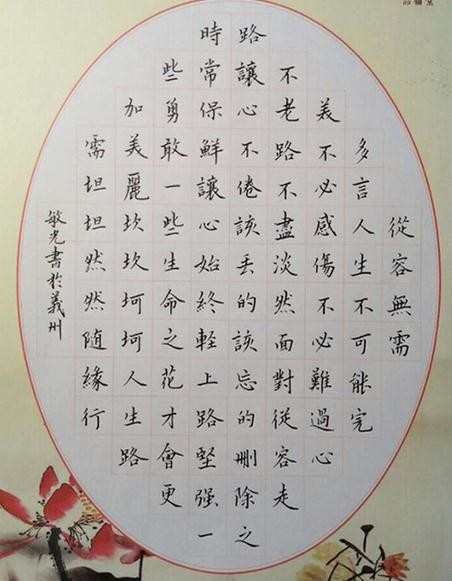 從容無需
多言人生不可能完
義不必感傷不必難過心
不老路不盡淡然面對從容走
路讓心不倦該丢的該忘的刪除之
時常保鮮讓心始終軽上路堅强一
些勇敢一些生命之花才會更
加美麗坎坎坷坷人生路
需坦坦然然随緣行
敏光書於義州